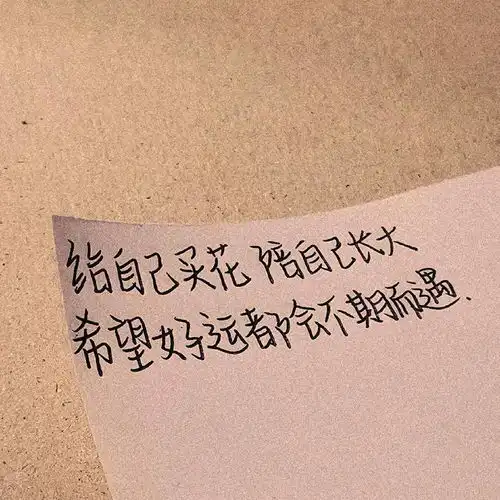 给自己买花 陪自己长大
希望好运都会不期而遇.